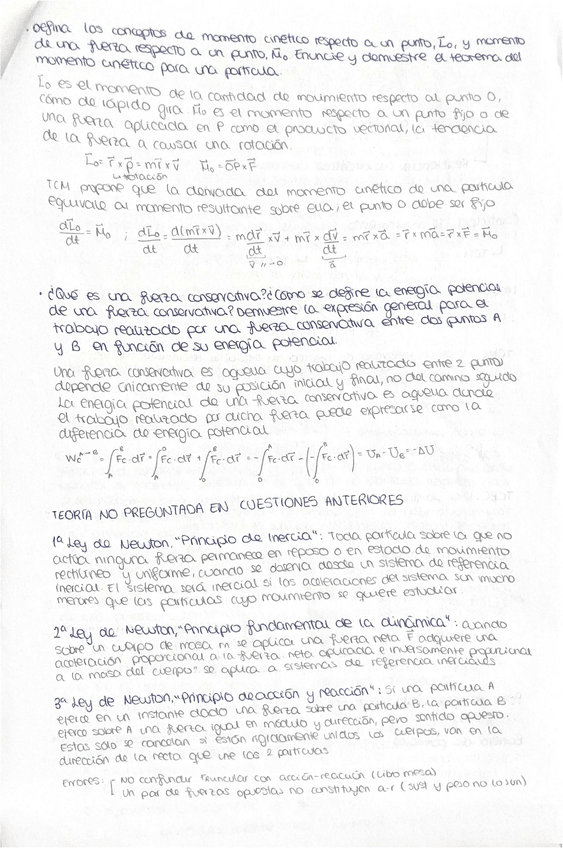 · Defina los conceptos de momento cinético respecto a un punto, L̄o, y momento
de una fuerza respecto a un punto, M̄o. Enuncie y demuestre el teorema del
momento cinético para una partícula.
L̄o es el momento de la cantidad de movimiento respecto al punto O,
cómo de rápido gira. M̄o es el momento respecto a un punto fijo O de
una fuerza aplicada en P como el producto vectorial, la tendencia
de la fuerza a causar una rotación.
L̄o = r̄ x p̄ = m r̄ x v̄   M̄o = O̅P̅ x F̄
↳ rotación
TCM propone que la derivada del momento cinético de una partícula
equivale al momento resultante sobre ella, el punto O debe ser fijo
dL̄o/dt = M̄o ; dL̄o/dt = d(m r̄ x v̄)/dt = m dr̄/dt x v̄ + m r̄ x dv̄/dt = m r̄ x ā = r̄ x mā = r̄ x F̄ = M̄o
· ¿Qué es una fuerza conservativa? ¿Cómo se define la energía potencial
de una fuerza conservativa? Demuestre la expresión general para el
trabajo realizado por una fuerza conservativa entre dos puntos A
y B en función de su energía potencial.
Una fuerza conservativa es aquella cuyo trabajo realizado entre 2 puntos
depende únicamente de su posición inicial y final, no del camino seguido
La energía potencial de una fuerza conservativa es aquella donde
el trabajo realizado por dicha fuerza puede expresarse como la
diferencia de energía potencial
Wc A→B = ∫A B Fc · dr̄ = ∫A O Fc · dr̄ + ∫O B Fc · dr̄ = -∫O A Fc · dr̄ - (-∫O B Fc · dr̄) = UA - UB = -ΔU
TEORÍA NO PREGUNTADA EN CUESTIONES ANTERIORES
1ª Ley de Newton, "Principio de inercia": Toda partícula sobre la que no
actúa ninguna fuerza permanece en reposo o en estado de movimiento
rectilíneo y uniforme, cuando se observa desde un sistema de referencia
inercial. El sistema será inercial si las aceleraciones del sistema son mucho
menores que las partículas cuyo movimiento se quiere estudiar.
2ª Ley de Newton, "Principio fundamental de la dinámica": cuando
sobre un cuerpo de masa m se aplica una fuerza neta F̄ adquiere una
aceleración proporcional a la fuerza neta aplicada e inversamente proporcional
a la masa del cuerpo" se aplica a sistemas de referencia inerciales
3ª Ley de Newton, "Principio de acción y reacción": Si una partícula A
ejerce en un instante dado una fuerza sobre una partícula B, la partícula B
ejerce sobre A una fuerza igual en módulo y dirección, pero sentido opuesto.
Estas solo se cancelan si están rígidamente unidos los cuerpos, van en la
dirección de la recta que une las 2 partículas
Errores: [ No confundir con acción-reacción (libro mesa)
Un par de fuerzas opuestas no constituyen a-r (sust y peso no lo son)